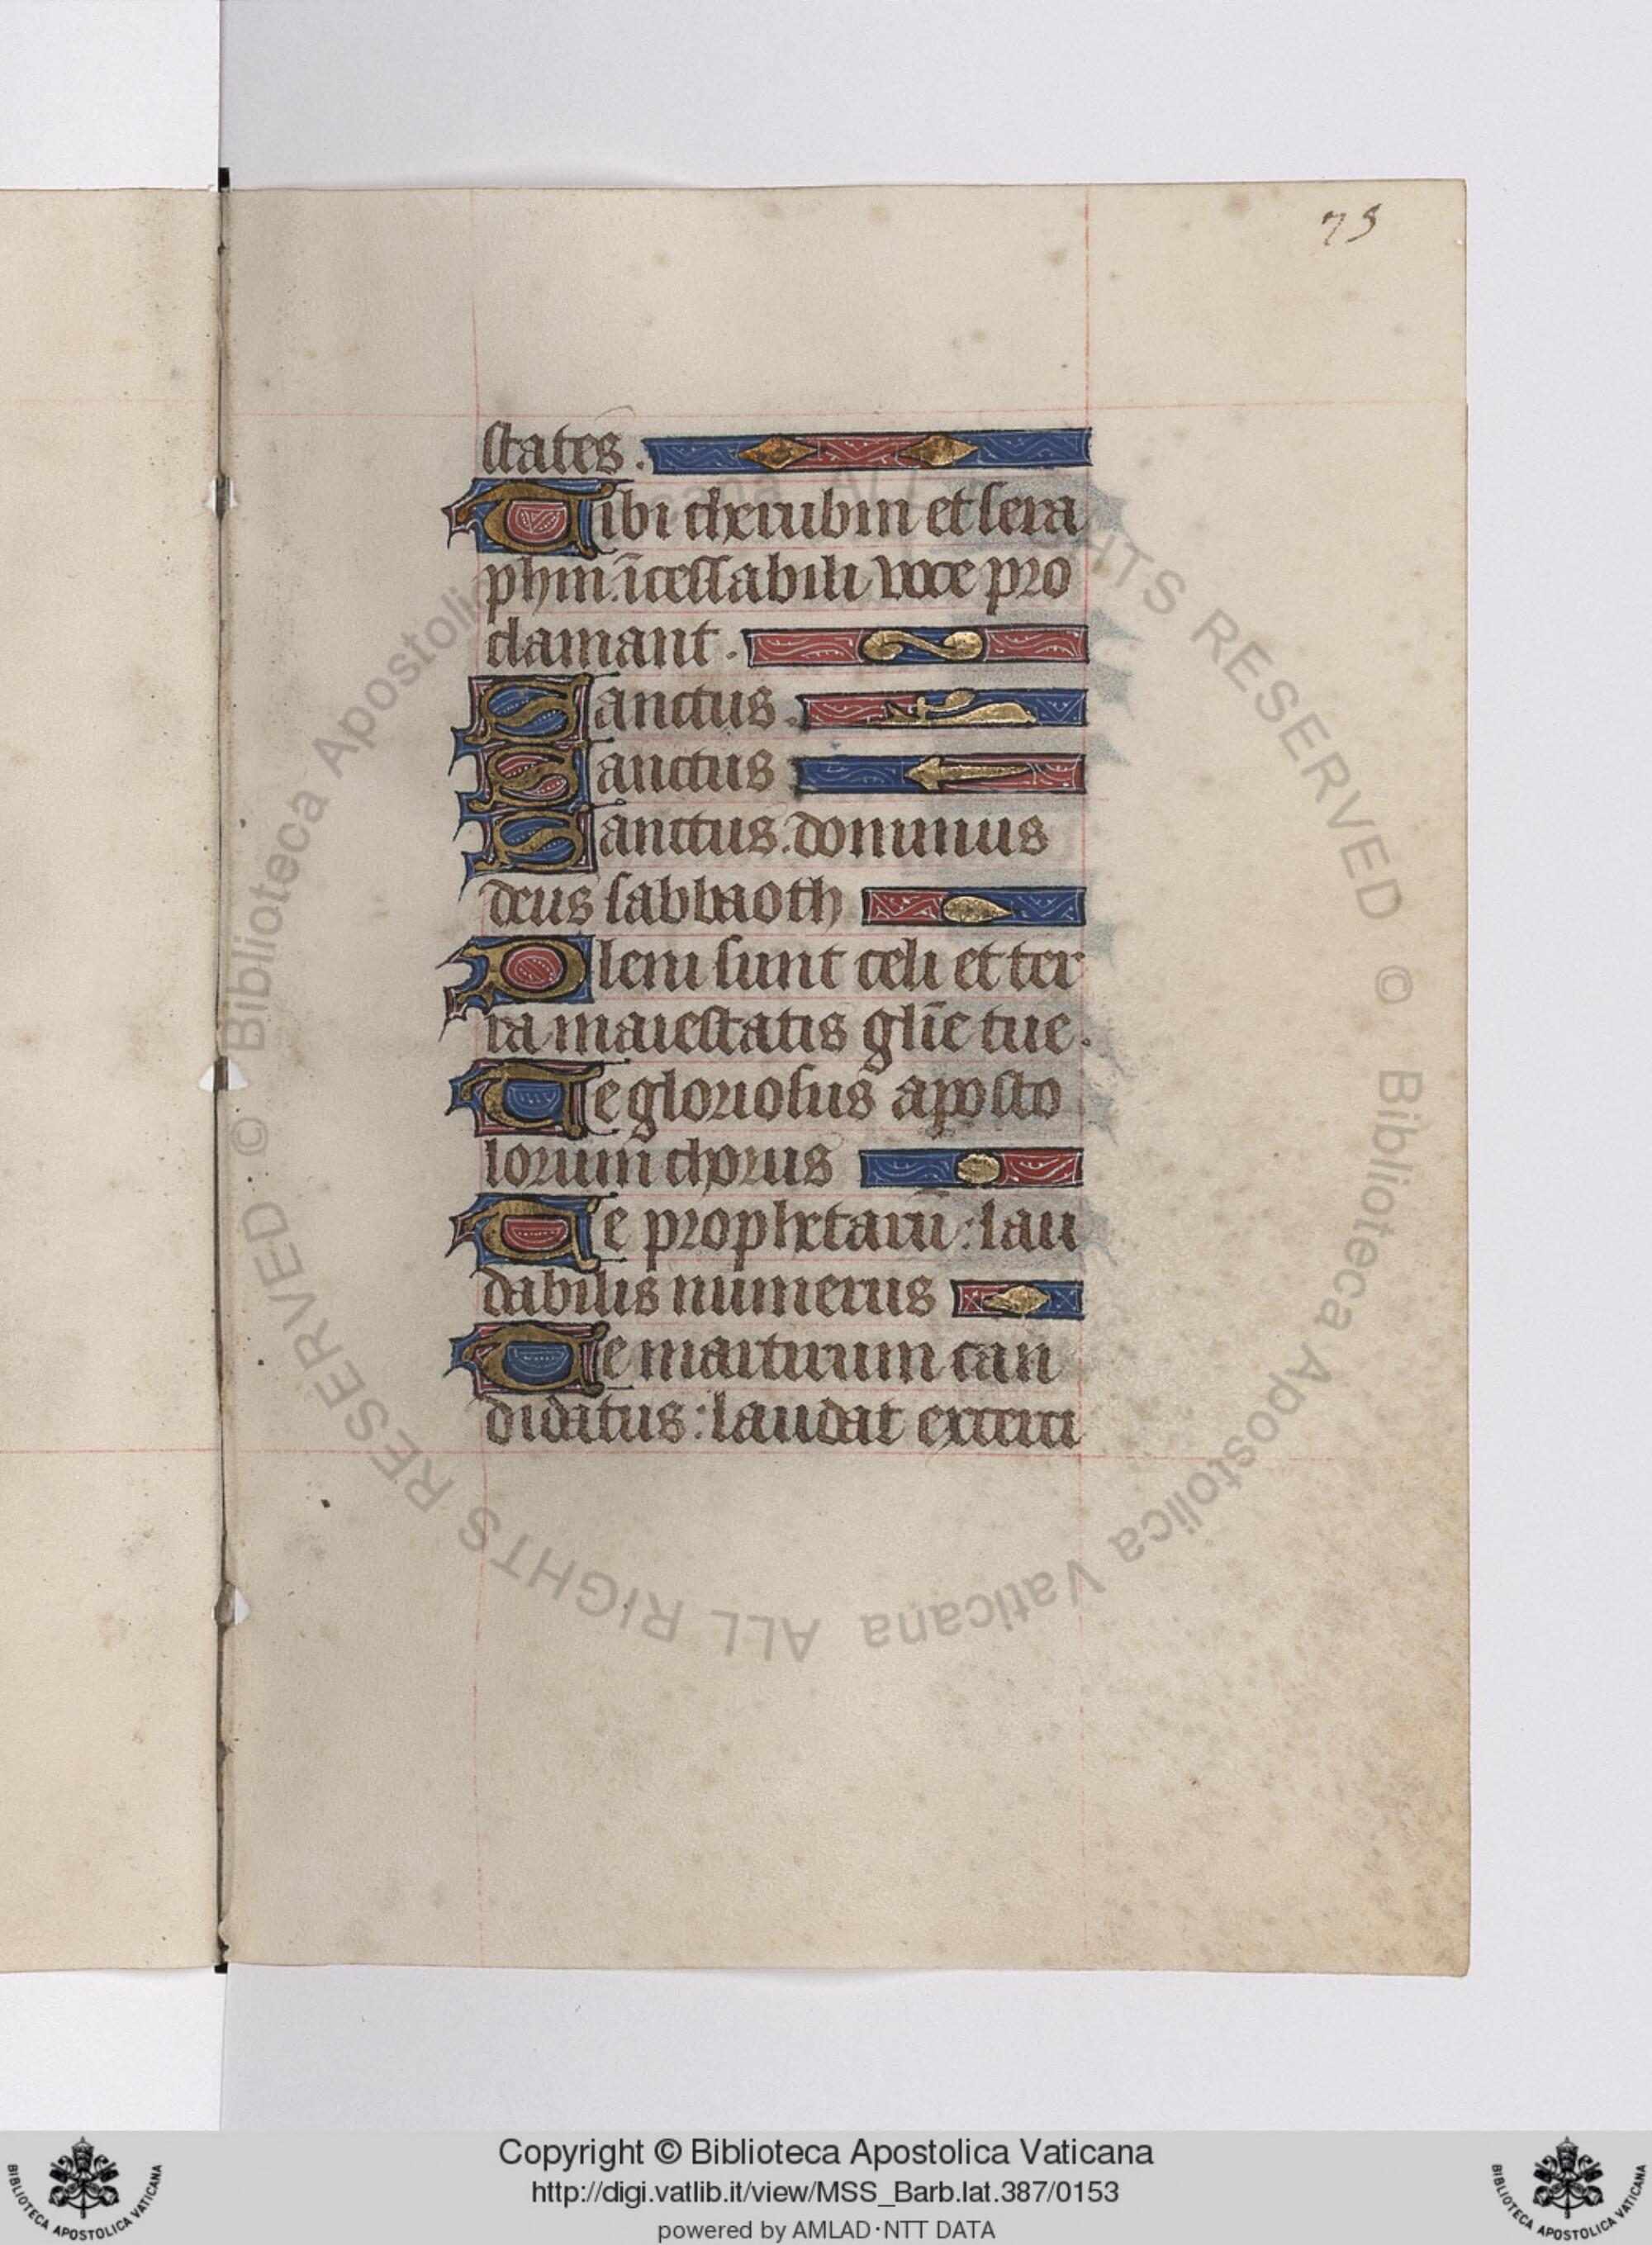 75
states.
Tibi cherubin et sera
phin.īcessabili voce pro
clamant.
Sanctus.
Sanctus
Sanctus.dominus
deus sabbaoth
Pleni sunt celi et ter
ra maiestatis gl̄ie tue.
Te gloriosus aposto
lorum chorus
Te prophetarū:lau
dabilis numerus
Te martirum can
didatus:laudat exerci
© Biblioteca Apostolica Vaticana ALL RIGHTS RESERVED
© Biblioteca Apostolica Vaticana ALL RIGHTS RESERVED
Copyright © Biblioteca Apostolica Vaticana
http://digi.vatlib.it/view/MSS_Barb.lat.387/0153
powered by AMLAD·NTT DATA
BIBLIOTECA APOSTOLICA VATICANA
BIBLIOTECA APOSTOLICA VATICANA